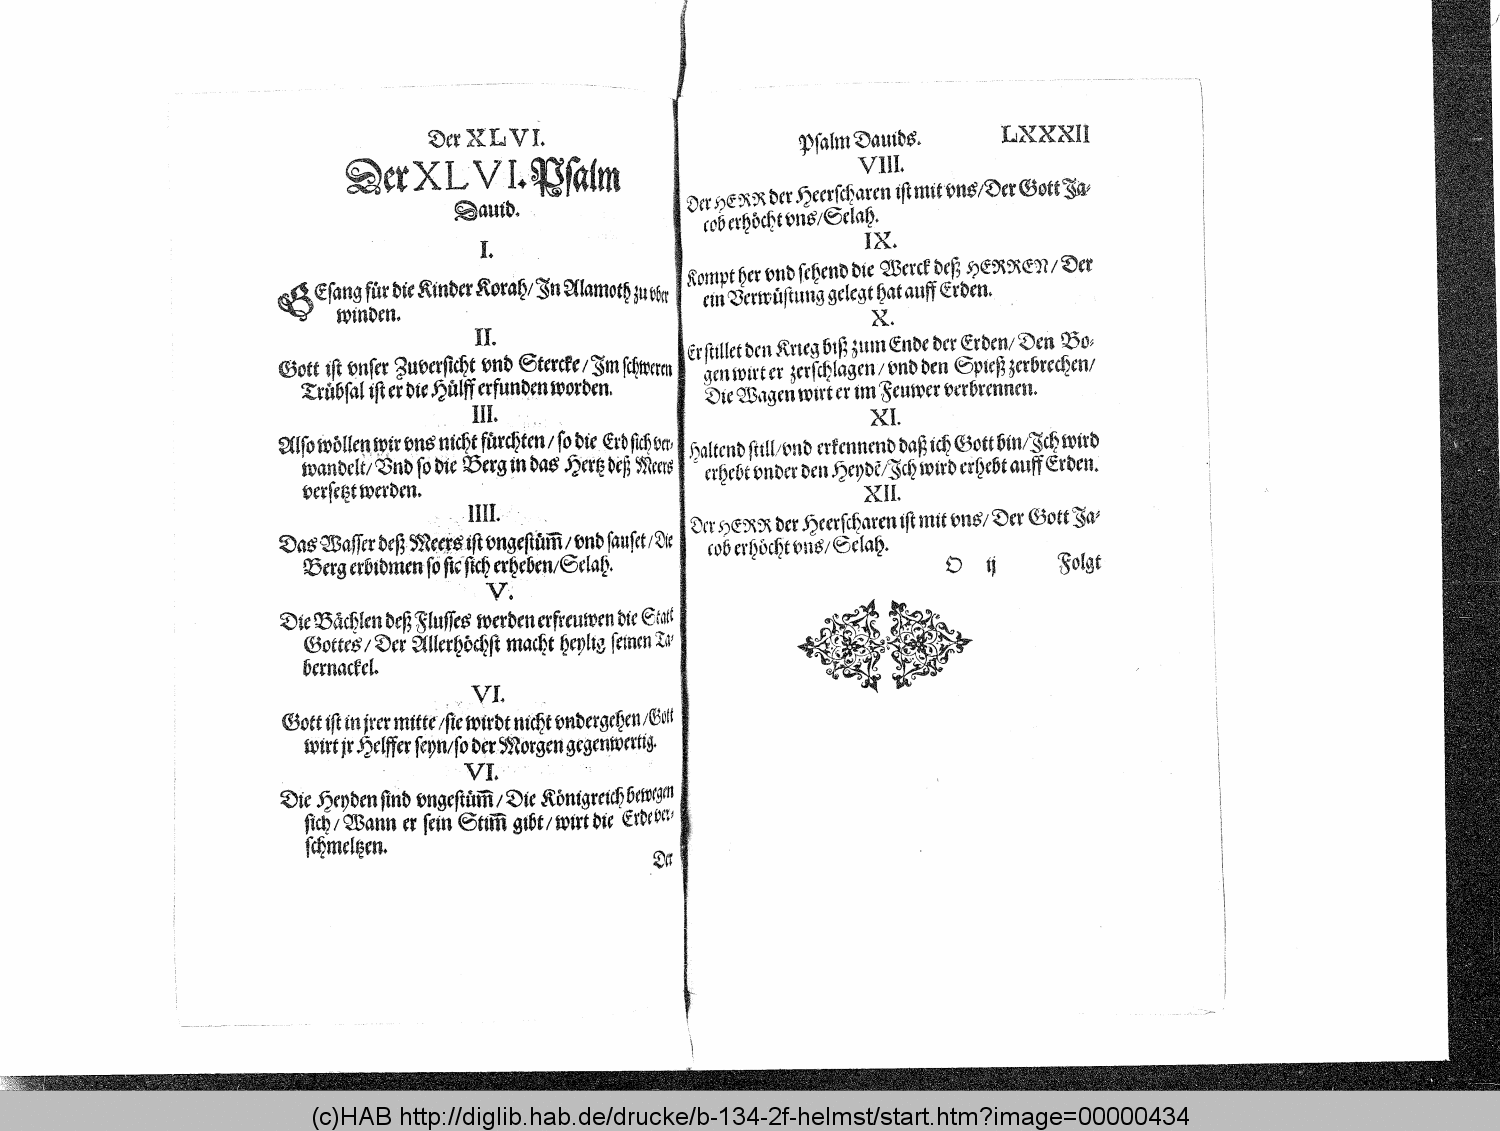 Der XLVI.
Der XLVI. Psalm
Dauid.
I.
GEsang für die Kinder Korah/ In Alamoth zu vber
winden.
II.
Gott ist vnser Zuversicht vnd Stercke/ Im schweren
Trübsal ist er die Hülff erfunden worden.
III.
Also wöllen wir vns nicht fürchten/ so die Erd sich ver-
wandelt/ Vnd so die Berg in das Hertz deß Meers
versetzt werden.
IIII.
Das Wasser deß Meers ist vngestüm̅/ vnd sauset/ Die
Berg erbidmen so sie sich erheben/ Selah.
V.
Die Bächlen deß Flusses werden erfreuwen die Statt
Gottes/ Der Allerhöchst macht heylig seinen Ta-
bernackel.
VI.
Gott ist in jrer mitte/ sie wirdt nicht vndergehen/ Gott
wirt jr Helffer seyn/ so der Morgen gegenwertig.
VI.
Die Heyden sind vngestüm̅/ Die Königreich bewegen
sich/ Wann er sein Stim̅ gibt/ wirt die Erde ver-
schmeltzen.
Der
Psalm Dauids. LXXXII
VIII.
Der HERR der Heerscharen ist mit vns/ Der Gott Ja-
cob erhöcht vns/ Selah.
IX.
Kompt her vnd sehend die Werck deß HERREN/ Der
ein Verwüstung gelegt hat auff Erden.
X.
Er stillet den Krieg biß zum Ende der Erden/ Den Bo-
gen wirt er zerschlagen/ vnd den Spieß zerbrechen/
Die Wagen wirt er im Feuwer verbrennen.
XI.
Haltend still/ vnd erkennend daß ich Gott bin/ Ich wird
erhebt vnder den Heydẽ/ Ich wird erhebt auff Erden.
XII.
Der HERR der Heerscharen ist mit vns/ Der Gott Ja-
cob erhöcht vns/ Selah.
O ij Folgt
(c)HAB http://diglib.hab.de/drucke/b-134-2f-helmst/start.htm?image=00000434